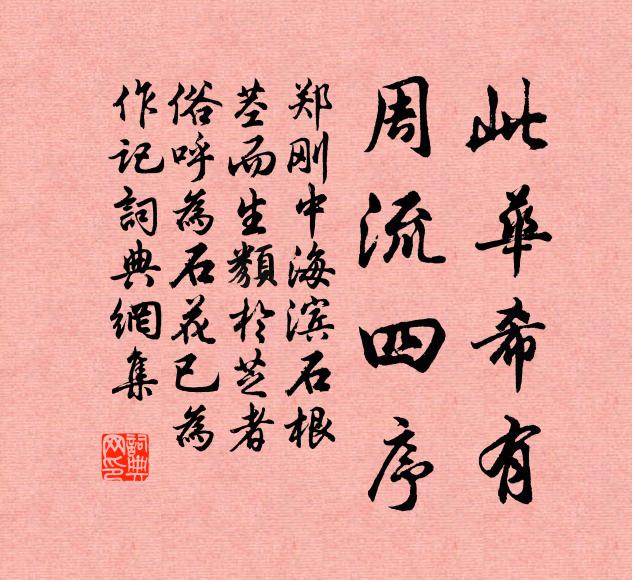 此華希有
周流四序
郑刚中海滨石根
茎而生類於芝者
俗呼為石花已為
作记詞典網集
詞典网印